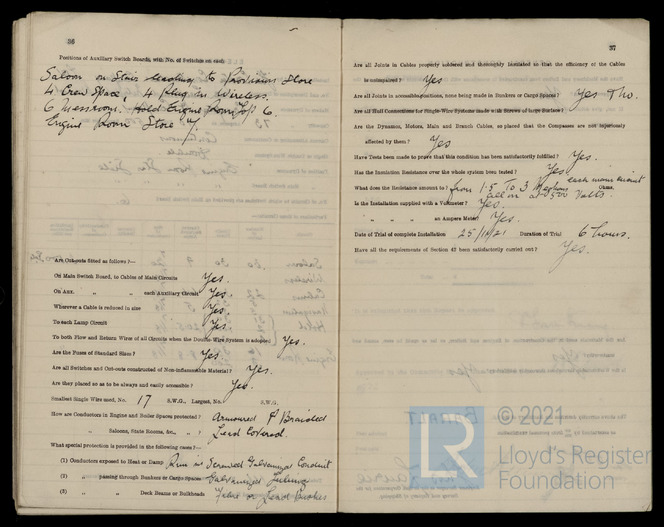 36
Positions of Auxiliary Switch Boards, with No. of Switches on each
Saloon on Stairs leading to Provision Store
4 Crew Space, 4 Plug in Wireless.
6 Messroom. Engine Room 6.
Engine Room Store
Are Cut-outs fitted as follows?—
On Main Switch Board, to Cables of Main Circuits Yes.
On Aux. " " each Auxiliary Circuit Yes.
Wherever a Cable is reduced in size Yes.
To each Lamp Circuit Yes.
To both Flow and Return Wires of all Circuits when the Double Wire System is adopted Yes.
Are the Fuses of Standard Sizes? Yes.
Are all Switches and Cut-outs constructed of Non-inflammable Material? Yes.
Are they placed so as to be always and easily accessible? Yes.
Smallest Single Wire used, No. 17 S.W.G., Largest, No. S.W.G.
How are Conductors in Engine and Boiler Spaces protected? Armoured & Braided
" Saloons, State Rooms, &c., " ? Lead Covered.
What special protection is provided in the following cases?—
(1) Conductors exposed to Heat or Damp Run in Screwed Galvanized Conduit
(2) " passing through Bunkers or Cargo Spaces Galvanized Tubing
(3) " " Deck Beams or Bulkheads or Lead Bushes
37
Are all Joints in Cables properly soldered and thoroughly insulated so that the efficiency of the Cables
is unimpaired? Yes
Are all Joints in accessible positions, none being made in Bunkers or Cargo Spaces? Yes
Are all Hull Connections for Single-Wire Systems made with Screws of large Surface?
Are the Dynamos, Motors, Main and Branch Cables, so placed that the Compasses are not injuriously
affected by them? Yes
Have Tests been made to prove that this condition has been satisfactorily fulfilled? Yes.
Has the Insulation Resistance over the whole system been tested? Yes
What does the Resistance amount to? from 1.5 To 3 Megohms each main circuit Ohms.
at 500 Volts.
Is the Installation supplied with a Voltmeter? Yes.
" " " an Ampere Meter? Yes.
Date of Trial of complete Installation 25/11/21 Duration of Trial 6 hours.
Have all the requirements of Section 42 been satisfactorily carried out? Yes.
© 2021
LR
Lloyd's Register
Foundation